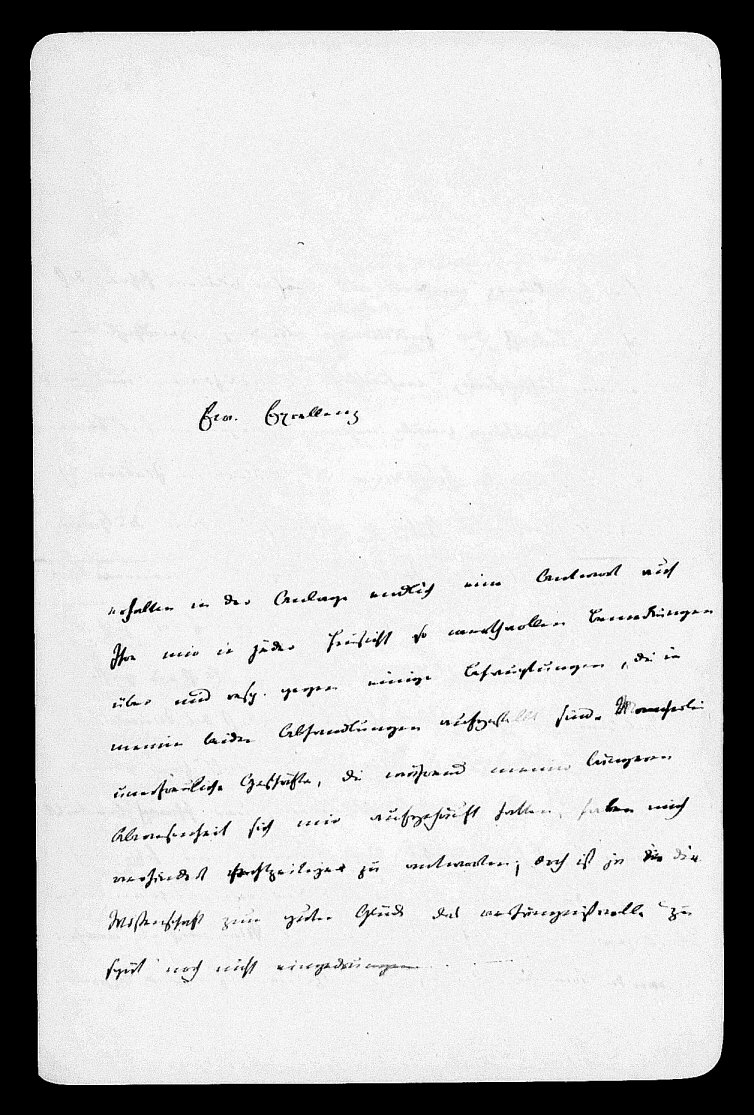 Ew. Excellenz
erhalten in der Anlage endlich eine Antwort auf
Ihre mir in jeder Hinsicht so werthvollen Bemerkungen
über und resp. gegen einige Behauptungen, die in
meinen beiden Abhandlungen aufgestellt sind. Mancherlei
unerfreuliche Geschäfte, die während meiner längeren
Abwesenheit sich mir aufgehäuft hatten, haben mich
verhindert rechtzeitiger zu antworten; doch ist ja in die
Wissenschaft zum guten Glück das verhängnißvolle zu
spät noch nicht eingedrungen.